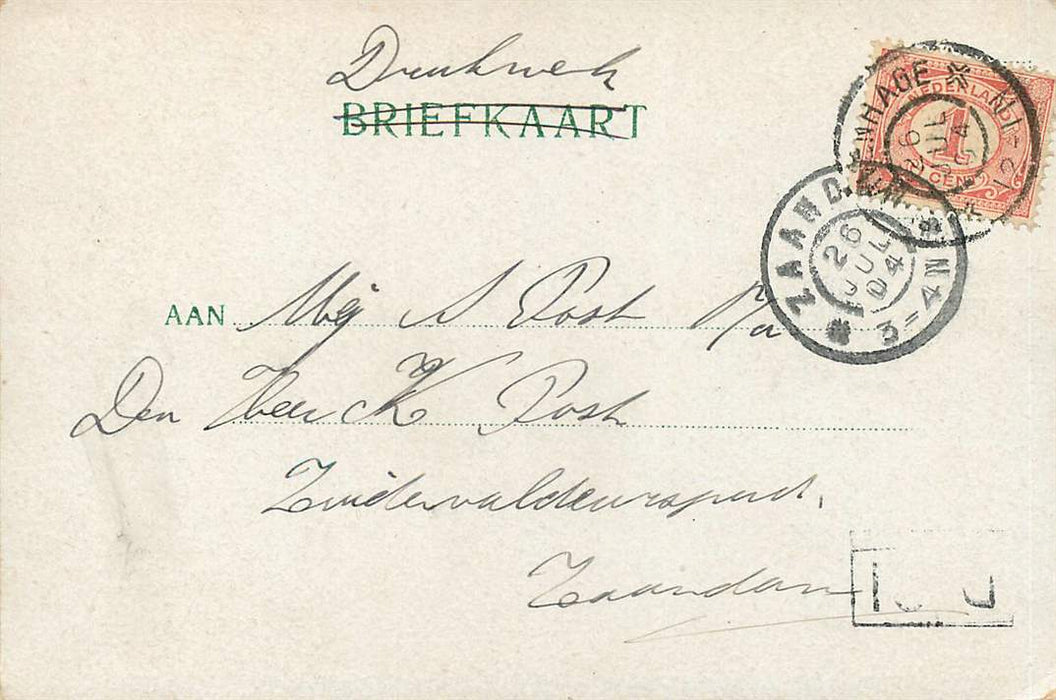 Drukwerk
BRIEFKAART
NEDERLAND
1
CENT
NHAGE
26
JUL
04
ZAANDAM.
26
JUL
04
3-4N
AAN Mej A Post P/a
Den Heer K Post
Zuidervaldeurspad.
Zaandam